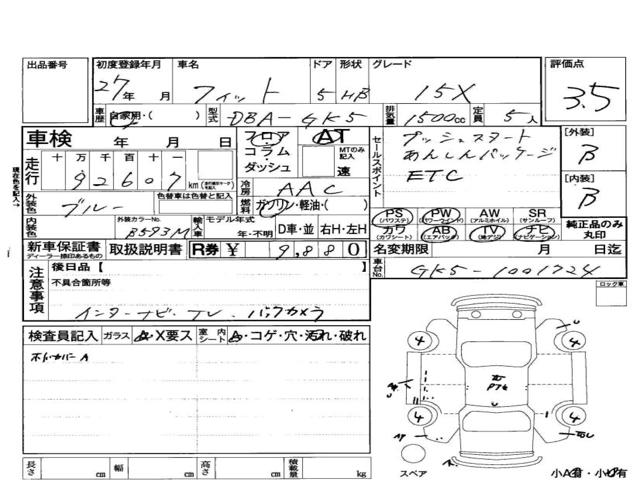 出品番号
初度登録年月 車名 ドア 形状 グレード 評価点
27年 月 フィット 5 HB 15X 3.5
車歴 自家用・( ) 型式 DBA-GK5 排気量 1500cc 定員 5人
車検 年 月 日 フロア AT
コラム・ MTのみ記入
ダッシュ 速
セールスポイント
プッシュスタート
あんしんパッケージ
ETC
[外装] B
[内装] B
走行 十 万 千 百 十 一
92607 km
現在色を記入→
冷房 AAC
外装色 ブルー 色替車は色替と記入 燃料 ガソリン・軽油・( )
内装色 外装カラーNo. B593M 輸入車 モデル年式 年・不明 D車・並 右H・左H
PS (パワステ) PW (パワーウインド) AW (アルミホイル) SR (サンルーフ)
カワ (カワシート) AB (エアバック) TV (地デジ) ナビ (ナビゲーション)
純正品のみ丸印
新車保証書 取扱説明書 R券 ¥ 9,880
ディーラー捺印あるもの
名変期限 月 日迄
車台No. GK5-1001724
ロック車
注意事項
後日品 [ ]
不具合箇所等
インターナビ、TV、バックカメラ
検査員記入 ガラス A・X要ス 室内シート A・コゲ・穴・汚れ・破れ
4 4
4 4
スペア
長さ cm 幅 cm 高さ cm 積載量 kg
小A有・小U有